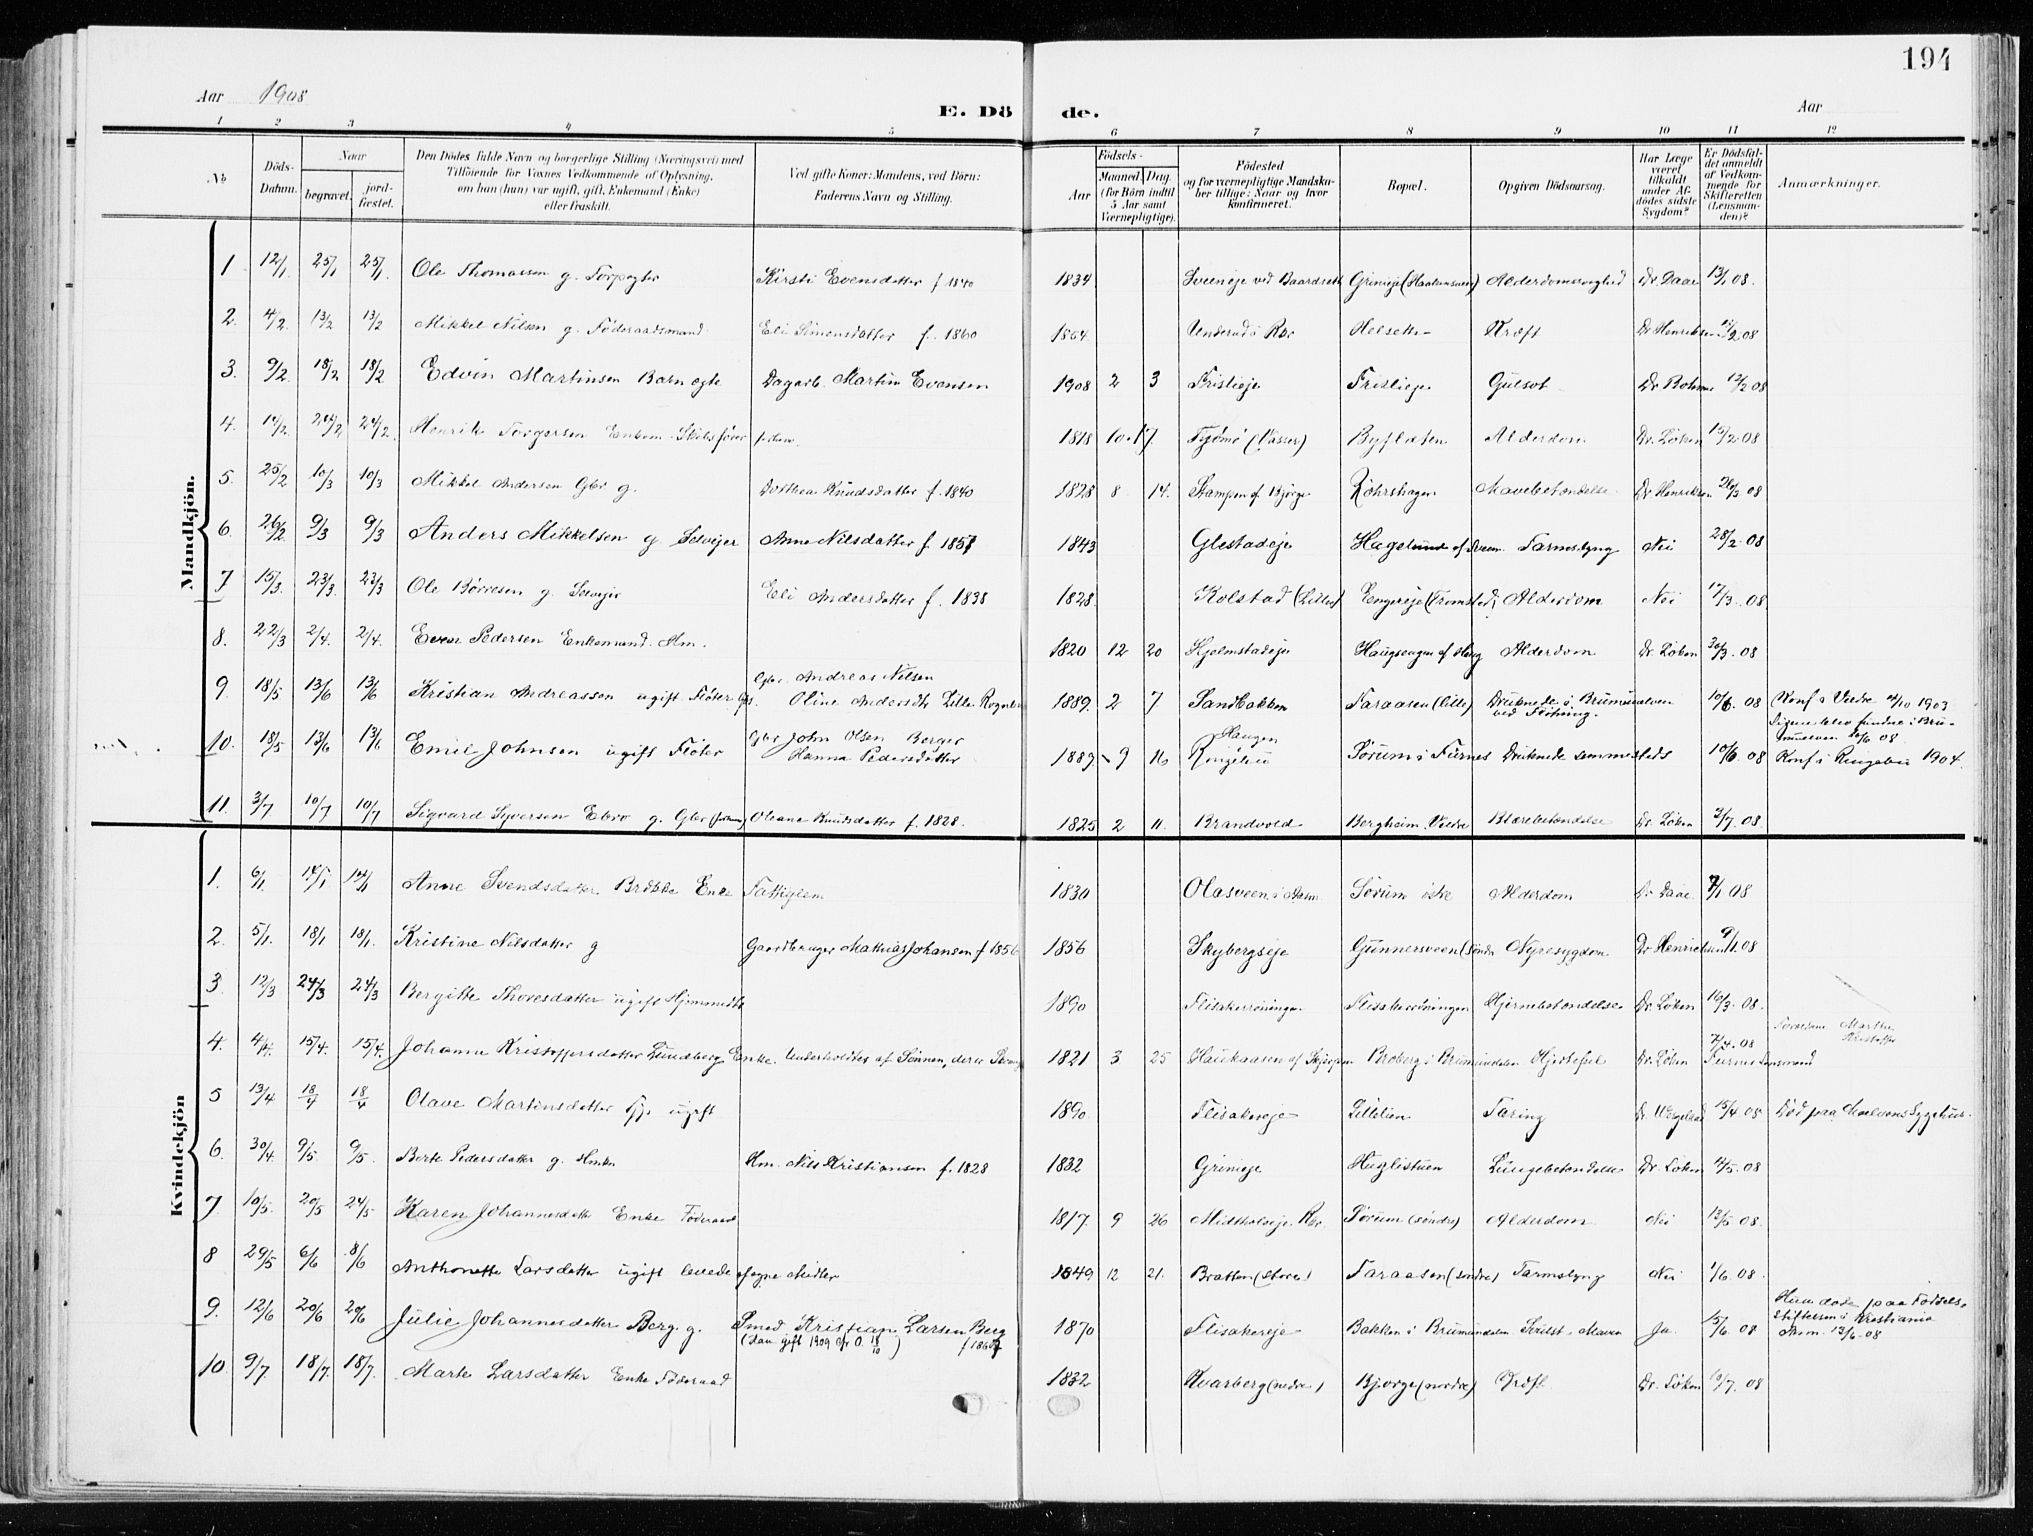 194
Aar 1908
E. Dö de.
Aar
1 2 3 4 5 6 7 8 9 10 11 12
No
Döds-Datum.
Naar
begravet.
jord-fæstet.
Den Dödes fulde Navn og borgerlige Stilling (Næringsvei) med
Tilföiende for Voxnes Vedkommende af Oplysning,
om han (hun) var ugift, gift, Enkemand (Enke)
eller fraskilt.
Ved gifte Koner: Mandens, ved Börn:
Faderens Navn og Stilling.
Födsels-
Aar
Maaned. Dag.
(for Börn indtil
5 Aar samt
Værnepligtige).
Födested
og for værnepligtige Mandska-
ber tillige: Naar og hvor
konfirmeret.
Bopæl.
Opgiven Dödsaarsag.
Har Læge
været
tilkaldt
under Af-
dödes sidste
Sygdom?
Er Dödsfal-
det anmeldt
af Vedkom-
mende for
Skifteretten
(Lensman-
den)?
Anmærkninger.
Mandkjön.
1 12/1 25/1 25/1 Ole Thomassen g. Kirsti Evensdatter f 1840 1834 Sveeneje ved Alderdomssvaghed Dr. Daae 13/1 08.
2. 4/2 13/2 13/2 Mikkel Nilsen g. Föderaadsmand. Eli Simensdatter f. 1860 1864 Helseth Kræft Dr Henriksen 2 08
3. 9/2 18/2 18/2 Edvin Martinsen Barn ægte Dagarb. Martin Evensen 1908 2 3 Frislieje Frislieje Gulsot Dr 12/2 08
4. 14/2 24/2 24/2 Henrik Torgersen Enkem. Skibsfører 1818 10 17 Tjømö Byflaten Alderdom Dr. Löken 15/2 08
5. 25/2 10/3 10/3 Mikkel Andersen Gbr g. Dorthea Knudsdatter f. 1840 1828 8 14. Stampen af Bjørge Röhrshagen Mavebetændelse Dr Henriksen 26/2 08
6. 26/2 9/3 9/3 Anders Mikkelsen g Selvejer Anne Nilsdatter f 1851 1843 Glestadeje Hagelund af Sveen Tarmslyng Nei 28/2 08
7 15/3. 23/3. 23/3 Ole Börresen g. Selvejer Eli Andersdatter f. 1838 1828. Kolstad (Lille) Engereje (Tromstad) Alderdom Nei 17/3 08
8. 22/3 2/4. 2/4. Even Pedersen Enkemand Hm. 1820 12 20 Hjelmstadeje Haugsengen af Haug Alderdom Dr. Löken 30/3 08
9. 18/5 13/6 13/6 Kristian Andreassen ugift Flöter Gbr. Andreas Nilsen
Oline Andersdtr Lille 1889. 2 7 Sandbakken Faraasen (lille) Druknede i Brumundelven
ved Flötning. 10/6. 08 Konf i Veldre 4/10 1903
Ligene blev fundne i Bru-
mundelven 10/6 08.
10. 18/5 13/6 13/6 Emil Johnsen ugift Flöter Gbr John Olsen Berger
Hanna Pedersdatter 1889. 9 16 Haugen
Ringebu Sörum i Furnes Druknede sammesteds 10/6 08 Konf i Ringebu 1904.
11. 3/7. 10/7 10/7 Sigvard Syversen Ebro g. Gbr (forhen) Oleane Knudsdatter f. 1828. 1825 2 11. Brandvold Bergheim, Veldre Blærebetændelse Dr. Löken 3/7. 08.
Kvindekjön
1. 6/1. 14/1 14/1 Anne Svendsdatter Enke Fattiglem 1830 Olasveen i Aasm Sörum östre Alderdom Dr Daae. 7/1 08
2. 5/1. 18/1 18/1. Kristine Nilsdatter g Gaardbruger Mathias Johansen f 1856 1856 Skybergseje Gunnersveen (söndre Nyresygdom Dr Henriksen 9/1 08
3. 12/3 24/3 24/3 Bergitte Thoresdatter ugift Hjemmedtr 1890 Flisakerröningen Flisakerröningen Hjernebetændelse Dr. Löken 16/3. 08.
4. 4/4. 15/4. 15/4. Johanne Kristoffersdatter Lundberg Enke. Underholdtes af Sönnen, 1821 3 25 Haukaasen af Broberg i Brumunddalen Hjertefeil Dr. Löken 7/4 08
Furnes Lensmand Martha
Kristoffer
5 13/4 18/4 18/4 Olave Martinsdatter Tjp ugift 1890 Flisakereje Lillelien Tæring Dr. Wergeland 15/4 08 Död paa Moelvens Sygehus.
6. 30/4. 9/5. 9/5. Berte Pedersdatter g. Hmkn Hm. Nils Kristiansen f. 1828 1832 Grinieje Huglistuen Lungebetændelse Dr. Löken 4/5. 08
7 10/5. 20/5 24/5 Karen Johannesdatter Enke Föderaad 1817 9 26 Midtholseje Rbr. Sörum (söndre) Alderdom Nei 13/5 08.
8 29/5 6/6 8/6 Anthonette Larsdatter ugift levede af egne Midler 1849 12 21. Bratten (store) Faraasen (söndre) Tarmslyng Nei 1/6. 08.
9. 12/6 20/6 20/6 Julie Johannesdatter Berg g. Smed Kristian Larsen Berg
(Han gift 1909 18/10) f 1867 1870 Flisakereje Bakken i Brumunddalen Ja. 15/6. 08 Hun döde paa Födsels-
stiftelsen i Kristiania
Anm. 13/6 08
10. 9/7. 18/7. 18/7. Marte Larsdatter Enke Föderaad 1832 Kvarberg (nedre) Bjørge (nordre) Kræft Dr. Löken 10/7. 08